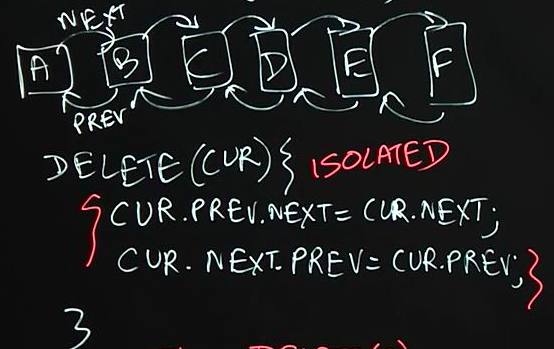 NEXT
A B C D E F
PREV
DELETE(CUR){ ISOLATED
{ CUR.PREV.NEXT = CUR.NEXT;
CUR.NEXT.PREV = CUR.PREV; }
}